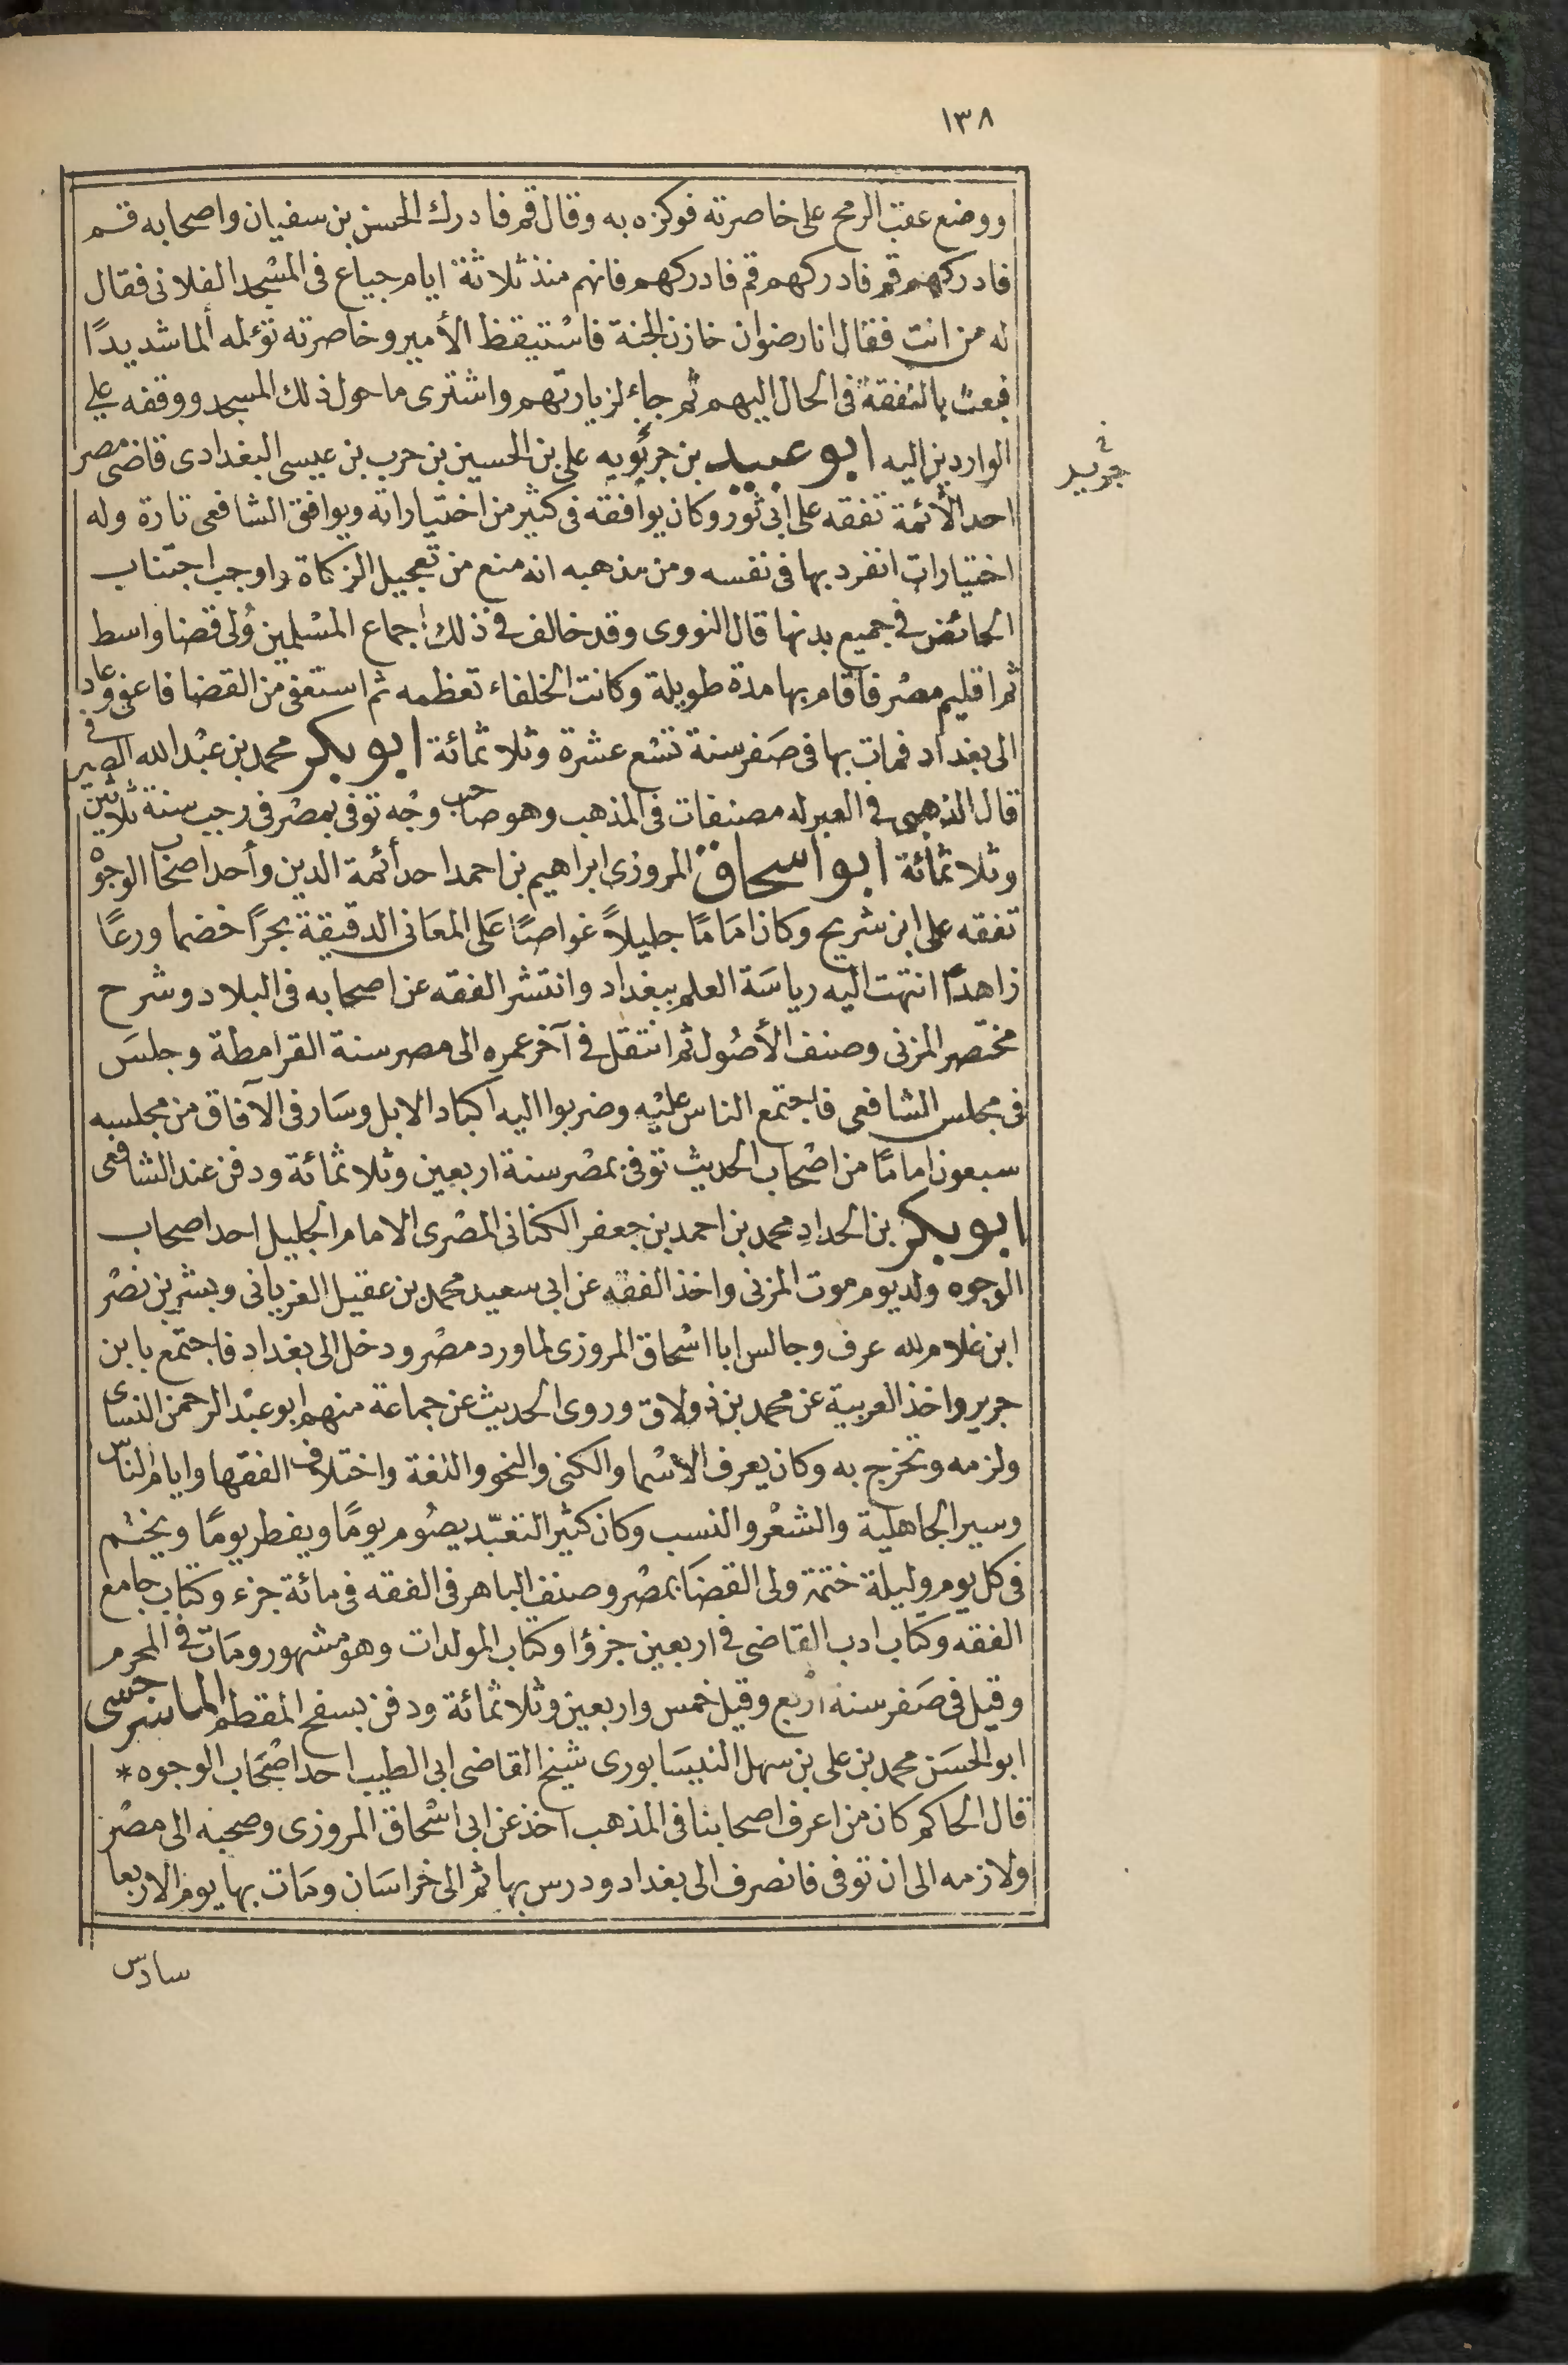 ١٣٨
ووضع عقب الرمح على خاصرته فوكزه به وقال قم فادرك الحسن بن سفيان واصحابه قم
فادركهم قم فادركهم قم فادركهم فانهم منذ ثلاثة ايام جياع فى المسجد الفلانى فقال
له من انت فقال انا رضوان خازن الجنة فاستيقظ الأمير وخاصرته تؤلمه ألما شديدًا
فبعث بالنفقة فى الحال اليهم ثم جاء لزيارتهم واشترى ما حول ذلك المسجد ووقفه على
الواردين اليه ابو عبيد بن جرثويه على بن الحسين بن حرب بن عيسى البغدادى قاضى مصر
احد الأئمة تفقه على ابى ثور وكان يوافقه فى كثير من اختياراته ويوافق الشافعى تارة وله
اختيارات انفرد بها فى نفسه ومن مذهبه انه منع من تعجيل الزكاة واوجب اجتناب
الحائض فى جميع بدنها قال النووى وقد خالف فى ذلك اجماع المسلمين وُلى قضا واسط
ثم اقليم مصر فاقام بها مدة طويلة وكانت الخلفاء تعظمه ثم استعفى من القضا فاعفى وعاد
الى بغداد فمات بها فى صفر سنة تسع عشرة وثلاثمائة ابو بكر محمد بن عبد الله الصيرفى
قال الذهبى فى العبر له مصنفات فى المذهب وهو صاحب وجْه توفى بمصر فى رجب سنة ثلاثين
وثلاثمائة ابو اسحاق المروزى ابراهيم بن احمد احد أئمة الدين وأحد اصحاب الوجوه
تفقه على ابن شريح وكان امَامًا جليلاً غواصًا عَلى المعَانى الدقيقة بحرًا خضما ورعًا
زاهدًا انتهت اليه رياسَة العلم ببغداد وانتشر الفقه عن اصحابه فى البلاد وشرح
مختصر المزنى وصنف الأصُول ثم انتقل فى آخر عمره الى مصر سنة القرامطة وجلسَ
فى مجلس الشافعى فاجتمع الناس عليْه وضربوا اليه اكباد الابل وسَار فى الآفاق من مجلسه
سبعون امامًا من اصْحاب الحديث توفى بمصر سنة اربعين وثلاثمائة ودفن عند الشافعى
ابو بكر بن الحدادِ محمد بن احمد بن جعفر الكنانى المصْرى الامام الجليل احد اصحاب
الوجوه ولد يوم موت المزنى واخذ الفقه عن ابى سعيد محمد بن عقيل الفريانى وبشر بن نصْر
ابن غلام لله عرف وجالس ابا اسْحاق المروزى لما ورد مصْر ودخل الى بغداد فاجتمع بابن
جرير واخذ العربية عن محمد بن ولاق وروى الحديث عن جماعة منهم ابو عبْد الرحمن النساى
ولزمه وتخرج به وكان يعرف الأسْما والكنى والنحو واللغة واختلاف الفقها وايام الناس
وسير الجاهلية والشعْر والنسب وكان كثير التعبّد يصُوم يومًا ويفطر يومًا ويختم
فى كل يوم وليلة ختمة ولى القضَا بمصْر وصنف الباهر فى الفقه فى مائة جزء وكتاب جامع
الفقه وكتاب ادب القاضى فى اربعين جزؤا وكتاب المولدات وهو مشهور ومَات فى المحرم
وقيل فى صَفر سنة اربع وقيل خمس واربعين وثلاثمائة ودفن بسفح المقطم الماسرجسى
ابو الحسَن محمد بن على بن سهل النيسَابورى شيخ القاضى ابى الطيب احد اصْحَاب الوجوه *
قال الحاكم كان من اعرف اصحابنا فى المذهب اخذ عن ابى اسْحاق المروزى وصحبه الى مصْر
ولازمه الى ان توفى فانصرف الى بغداد ودرس بها ثم الى خراسَان ومَات بها يوم الاربعا
سادس